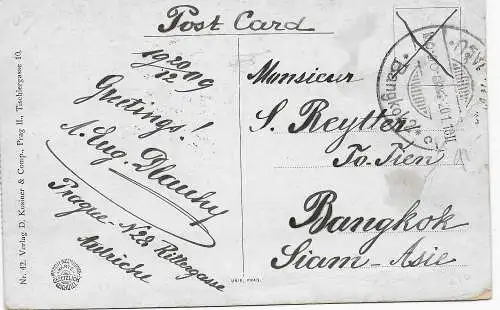 Post Card
19 20/12 09
Greetings!
A. Eug. Dlauhy
Prague - N28 Rittergasse
Autriche
Monsieur
S. Reytter
To-Tien
Bangkok
Siam-Asie
Nr. 42. Verlag D. Kosiner & Comp., Prag II., Tischlergasse 10.